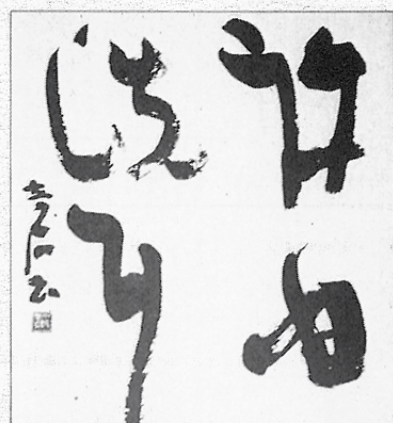 許由
洗耳